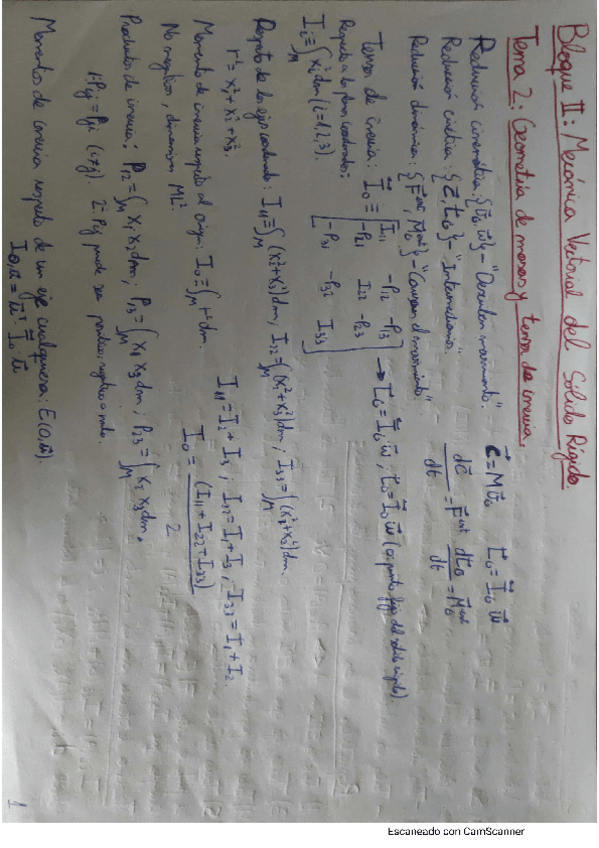 Bloque II: Mecánica Vectorial del Sólido Rígido.
Tema 2: Geometría de masas y tensor de inercia.
Reducción cinemática: {v⃗_G, ω⃗} - "Describen movimiento". C⃗ = M v⃗_G L⃗_G = I⃗_G ω⃗
Reducción cinética: {C⃗, L⃗_G} - "Intermediarios".
Reducción dinámica: {F⃗^ext, M⃗_G^ext} - "Causan el movimiento". dC⃗/dt = F⃗^ext dL⃗_G/dt = M⃗_G^ext
Tensor de inercia: I⃗_O ≡ [I11 -P12 -P13; -P21 I22 -P23; -P31 -P32 I33] → L⃗_G = I⃗_G ω⃗; L⃗_O = I⃗_O ω⃗ (O punto fijo del sólido rígido).
Respecto a los planos coordenados:
I_i = ∫_M x_i² dm (i=1,2,3).
Respecto de los ejes coordenados: I11 = ∫_M (x2² + x3²) dm; I22 = ∫_M (x1² + x3²) dm; I33 = ∫_M (x1² + x2²) dm.
r² = x1² + x2² + x3². I11 = I2 + I3; I22 = I1 + I3; I33 = I1 + I2.
Momento de inercia respecto al origen: I_O = ∫_M r² dm. I_O = (I11 + I22 + I33)/2
No negativos, dimension ML².
Productos de inercia: P12 = ∫_M x1 x2 dm; P13 = ∫_M x1 x3 dm; P23 = ∫_M x2 x3 dm.
1: Pij = Pji (i≠j). 2: Pij puede ser positivo, negativo o nulo.
Momentos de inercia respecto de un eje cualquiera: E(O, u⃗).
I_O,u⃗ = u⃗^T · I⃗_O · u⃗
1
Escaneado con CamScanner